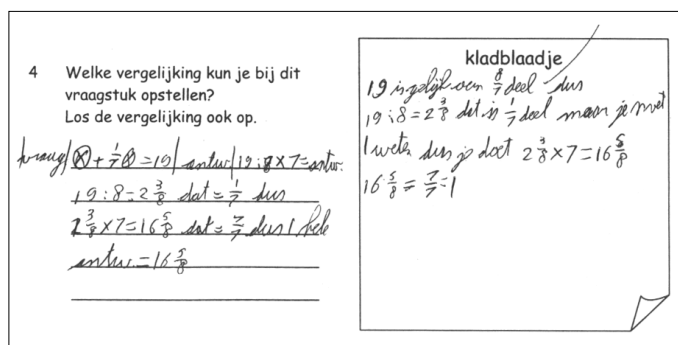 4 Welke vergelijking kun je bij dit
vraagstuk opstellen?
Los de vergelijking ook op.
vraag/ⓧ + 1/7 ⓧ = 19/ antw/19:8×7=antw.
19:8=2 3/8 dat = 1/7 dus
2 3/8 × 7 = 16 5/8 dat = 7/7 dus 1 hele
antw. = 16 5/8
kladblaadje
19 is gelijk aan 8/7 deel dus
19:8=2 3/8 dat is 1/7 deel maar je moet
1 weten dus je doet 2 3/8 × 7 = 16 5/8
16 5/8 = 7/7 = 1